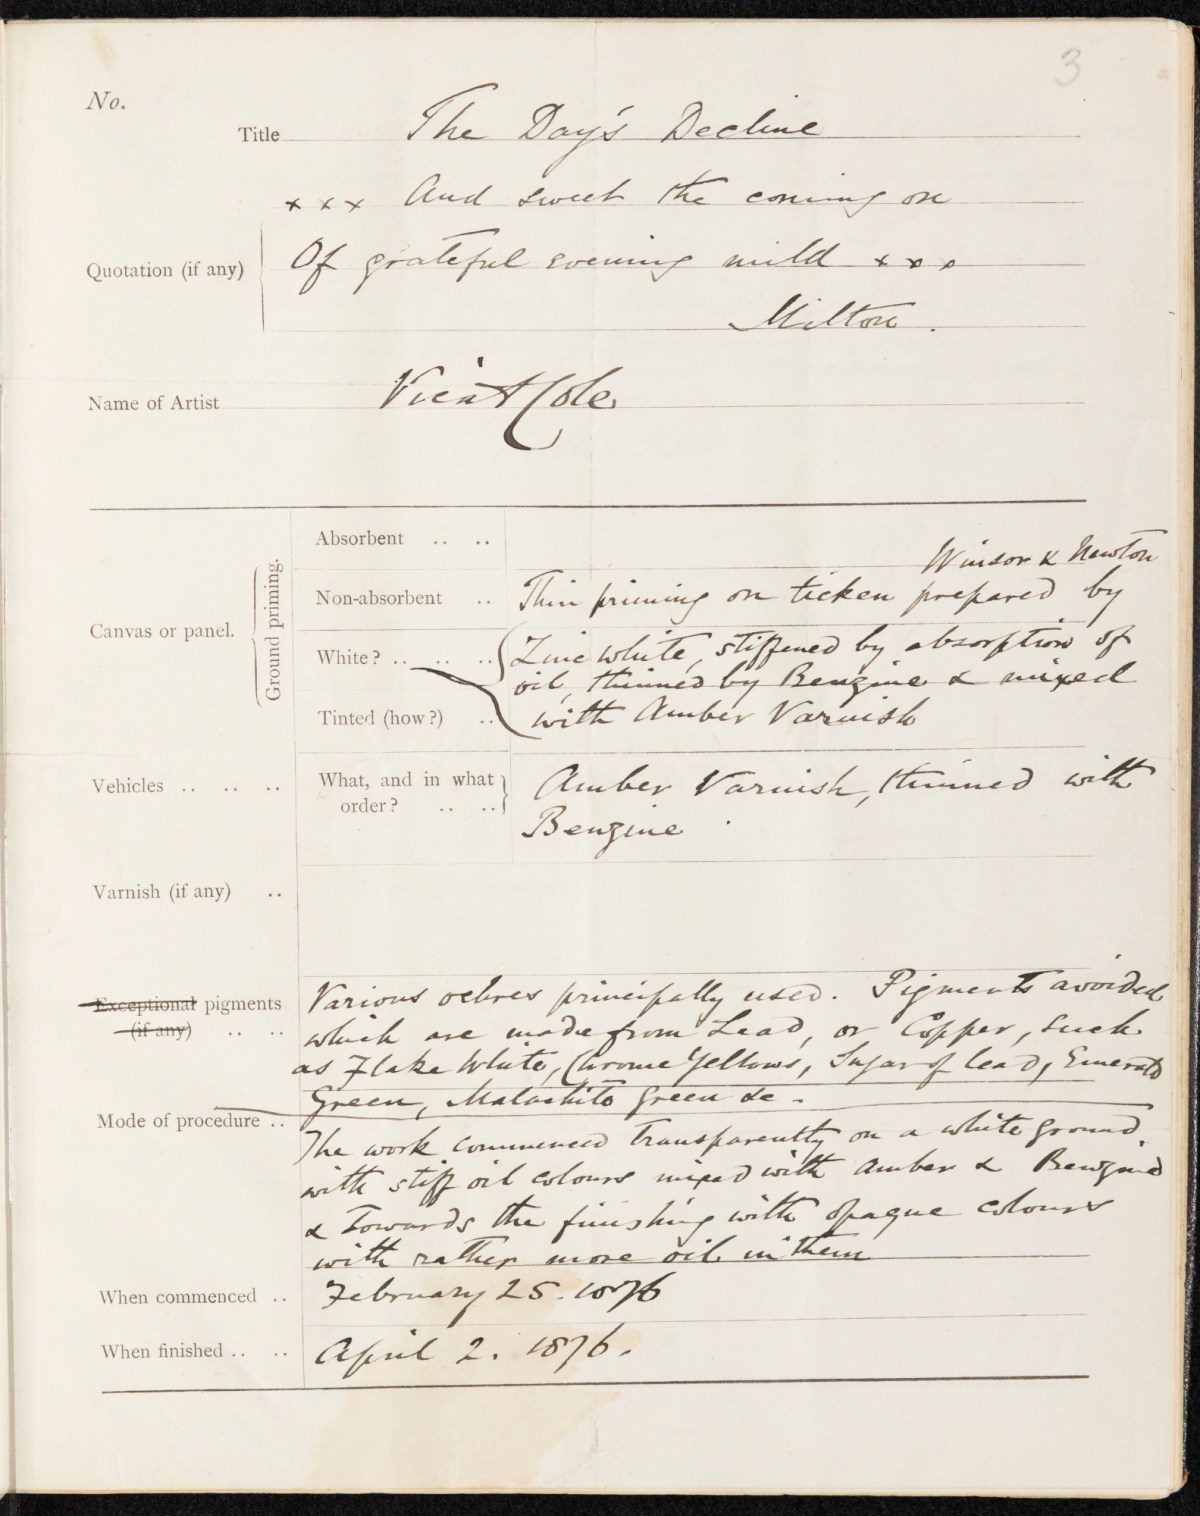 3
No.
Title The Day's Decline
x x x And sweet the coming on
Quotation (if any) Of grateful evening mild x x x
Milton.
Name of Artist Vicat Cole
Canvas or panel.
Ground priming.
Absorbent .. ..
Winsor & Newton
Non-absorbent .. Thin priming on ticken prepared by
White? .. .. .. Zinc white, stiffened by absorption of
oil, thinned by Benzine & mixed
Tinted (how?) .. with Amber Varnish
Vehicles .. .. .. What, and in what order? .. .. Amber Varnish, thinned with
Benzine.
Varnish (if any) ..
Exceptional pigments (if any) .. .. Various ochres principally used. Pigments avoided
which are made from Lead, or Copper, such
as Flake White, Chrome Yellows, Sugar of lead, Emerald
Green, Malachite Green &c.
Mode of procedure .. The work commenced transparently on a white ground,
with stiff oil colours mixed with amber & Benzine
& towards the finishing with opaque colours
with rather more oil in them
When commenced .. February 25. 1876
When finished .. .. April 2. 1876.